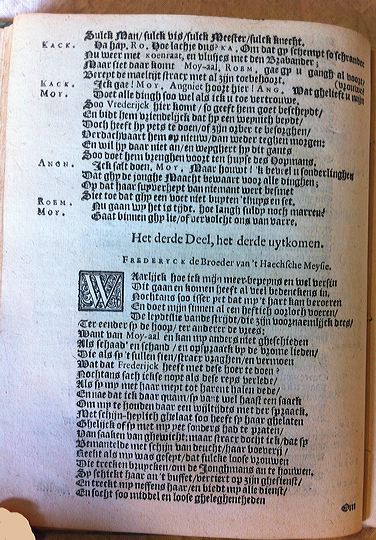 Sulck Man / sulck vis / sulck Meester / sulck knecht.
KACK. Ha hay, RO. Hoe lachje dus? KA, Om dat gy schempt so schrander
Nu weer met koenraet, en vlusjes met den Brabander;
Maer siet daer komt Moy-aal, ROEM. gae gy u gangh al voort;
Bereyt de maeltijt straex met al zijn toebehoort. vrouwe?
KACK. Ick gae! MOY, Angniet hoort hier! ANG, Wat ghelieft u mijn
MOY. Doet alle dingh soo wel als ick u toe vertrouwe.
Soo Vrederijck hier komt / so geeft hem goet bescheydt /
En bidt hem vriendelijck dat hy een weynich beydt /
Doch heeft hy yets te doen / of zijn orber te besorghen /
Verdochvaert hem op nieuw / dan weder tegen morgen:
En wil hy daer niet an / en weyghert hy dit gants
Soo doet hem brenghen voort ten huyse des Oopmans.
ANGN. Ick salt doen, MOY, Maer houwt! 'k beveel u sonderlinghen
Dat ghy de jonghe Maecht bewaert voor alle dinghen;
Op dat haer suyverheyt van niemant wert besmet
Siet toe dat ghy een voet niet buyten 'thuys en set.
ROEM. Nu gaan wy het is tijdt. hoe langh suldy noch marren?
MOY. Gaet binnen ghy lie / of vervolcht ons van varre.
Het derde Deel, het derde uytkomen.
FREDERYCK de Broeder van 't Haechsche Meysie.
WAarlijck hoe ick mijn meer bepeyns en wel versin
Dit gaan en komen heeft al veel bedenckens in.
Nochtans soo isser yet dat my 't hart kan beroeren
En doet mijn sinnen al een heftich oorloch voeren /
De leydtste vande strijdt / die zijn voornaemlijck dees /
Ter eender sy de hoop / ter anderer de vrees:
Want van Moy-aal en kan my anders niet gheschieden
Als schaad' en schand / en opspraeck by de vrome lieden /
Die als sy 't sullen sien / straex vraghen / en vermoen
Wat dat Frederick heeft met dese hoer te doen?
Nochtans sach ickse nopt als dese reys verledt /
Als sy my met haar mept tot harent halen dede /
En nae dat ick daer quam / sy vant wel haast een saack
Om my te houden daer een wijltijdts met der spraack.
Met schijn-heylich ghelaet soo heeft sy haar ghelaten
Ghelijck of sy met my yet sonders had te praten /
Van saaken van ghewicht: maar straex docht ick / dat sy
Bemantelde met schijn van deucht / haar boevery /
Recht als my was geseyt / dat sulcke loose vrouwen
Die trecken bruycken / om de Jonghmans an te houwen.
Sy schickt haar an 't buffet / verciert op zijn ghestienst /
En treckt my neffens haar / en biedt my alle dienst /
En socht soo middel en loose gheleghentheden
Om